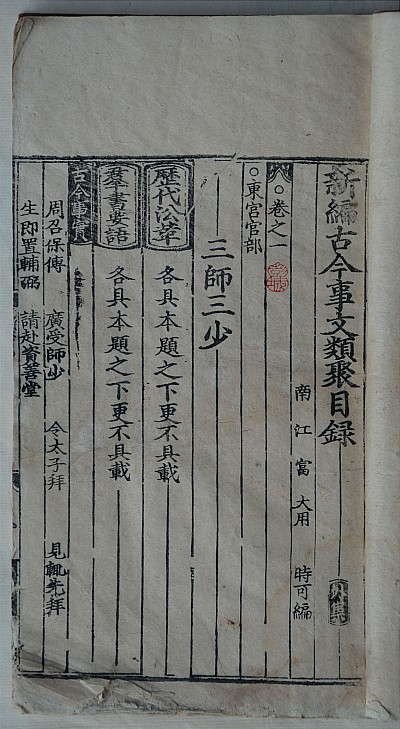 新編古今事文類聚目録 外集
南江富大用 時可編
○卷之一
○東宮官部
三師三少
歷代沿革 各具本題之下更不具載
羣書要語 各具本題之下更不具載
古今事實
周召保傅 廣受師少 令太子拜 見輒先拜
生即置輔弼 請赴資善堂